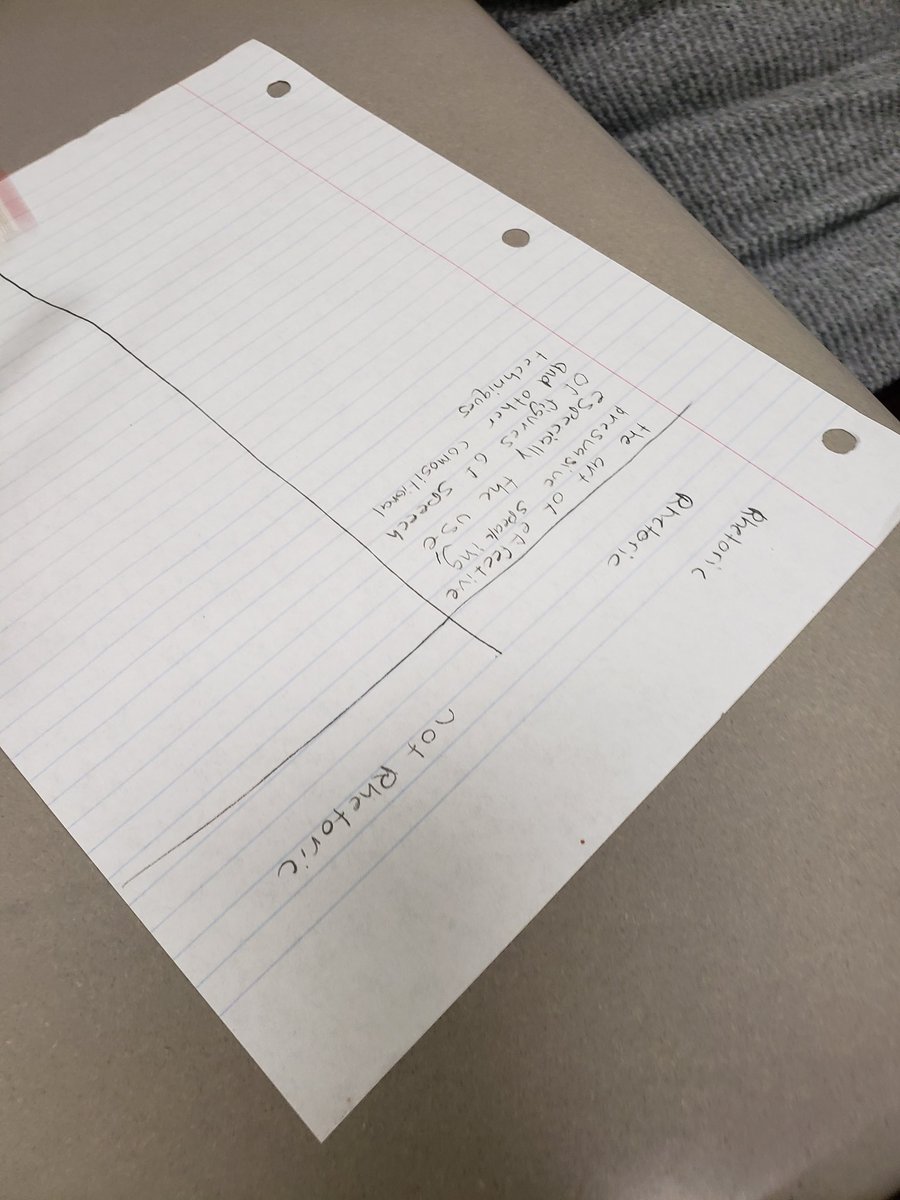 Rhetoric
Rhetoric
not Rhetoric
the art of effective
presuasive speaking,
especially the use
of figures of speech
and other comositional
techniques